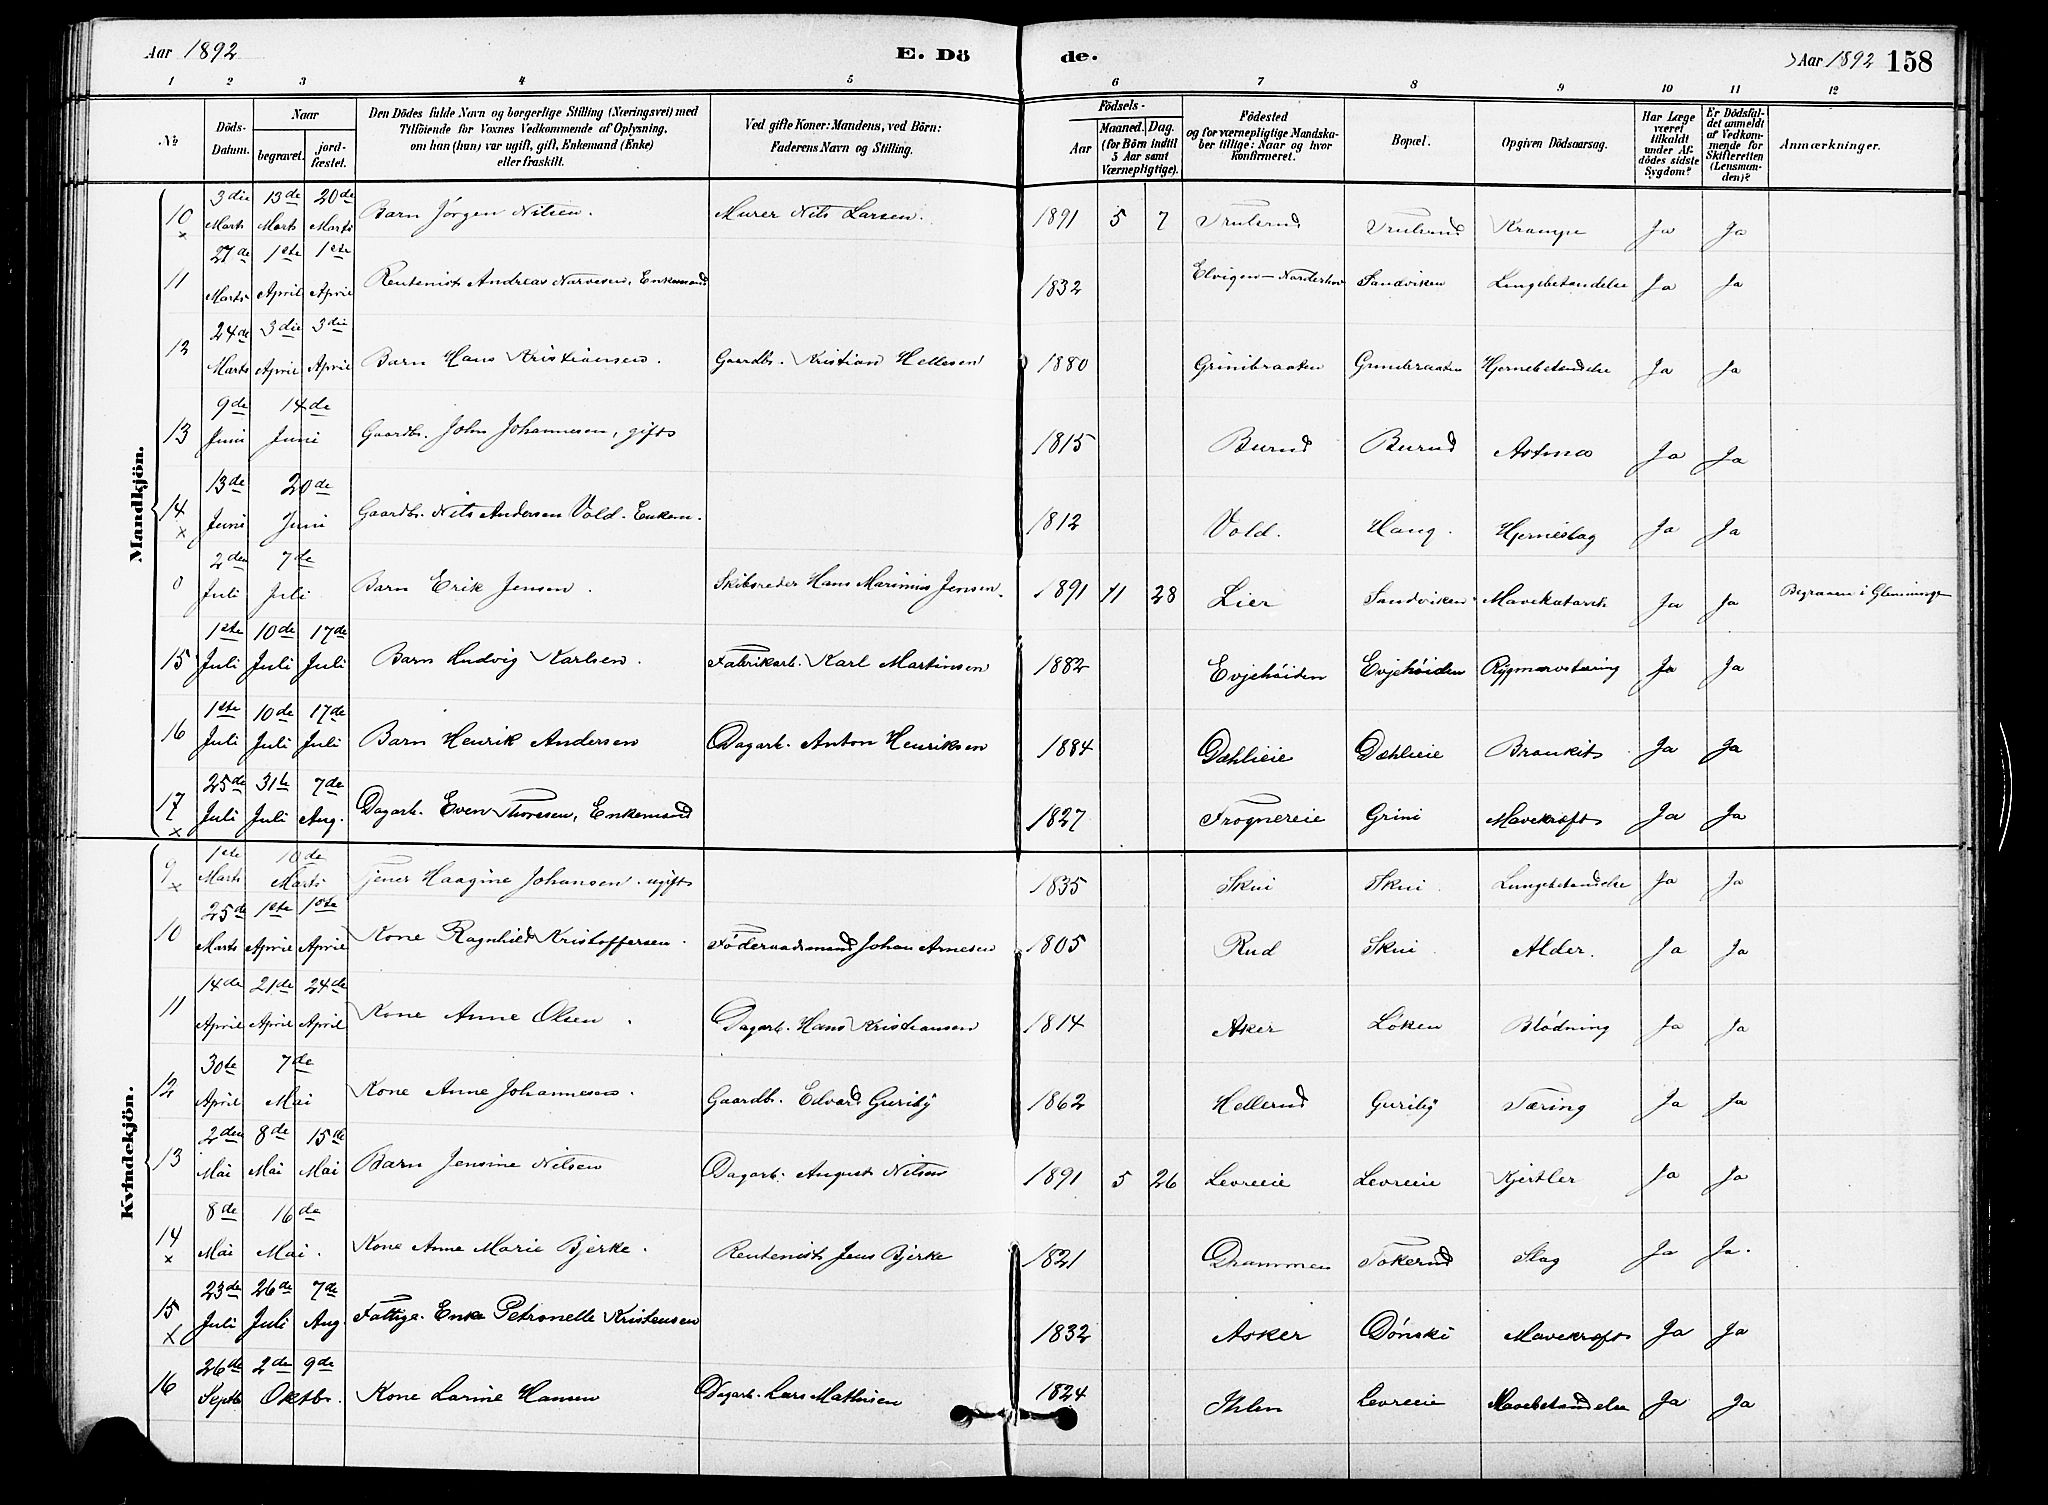 Aar 1892 E. Dö de. Aar 1892 158
1 2 3 4 5 6 7 8 9 10 11 12
№ Döds-Datum. Naar begravet. jord-fæstet. Den Dödes fulde Navn og borgerlige Stilling (Næringsvei) med Tilföiende for Voxnes Vedkommende af Oplysning, om han (hun) var ugift, gift, Enkemand (Enke) eller fraskilt. Ved gifte Koner: Mandens, ved Börn: Faderens Navn og Stilling. Födsels- Aar Maaned. Dag. (for Börn indtil 5 Aar samt Værnepligtige). Födested og for værnepligtige Mandskaber tillige: Naar og hvor konfirmeret. Bopæl. Opgiven Dödsaarsag. Har Læge været tilkaldt under Afdödes sidste Sygdom? Er Dödsfaldet anmeldt af Vedkommende for Skifteretten (Lensmanden)? Anmærkninger.
Mandkjön.
10 x 3die Marts 13de Marts 20de Marts Barn Jørgen Nilsen. Murer Nils Larsen. 1891 5 7 Trulsrud Trulsrud Krampe Ja Ja
11 27de Marts 1ste April 1ste April Rentenist Andreas Narvesen, Enkemand 1832 Elvigen - Norderhov Sandviken Lungebetændelse Ja Ja
12 24de Marts 3die April 3die April Barn Hans Kristiansen. Gaardbr. Kristian Hellesen 1880 Grinibraaten Grinibraaten Hjernebetændelse Ja Ja
13 9de Juni 14de Juni Gaardbr. John Johannesen, gift 1815 Burud Burud Astma Ja Ja
14 x 13de Juni 20de Juni Gaardbr. Nils Andersen Vold. Enkem. 1812 Vold. Haug. Hjerneslag Ja Ja
0 2den Juli 7de Juli Barn Erik Jensen. Skibsreder Hans Marinius Jensen. 1891 11 28 Lier Sandviken Mavekatarrh Ja Ja Begraven i Glemminge
15 1ste Juli 10de Juli 17de Juli Barn Ludvig Karlsen. Fabrikarb. Karl Martinsen 1882 Evjehöiden Evjehöiden Rygmarvstæring Ja Ja
16 1ste Juli 10de Juli 17de Juli Barn Henrik Andersen Dagarb. Anton Henriksen 1884 Dæhlieie Dæhlieie Bronkit Ja Ja
17 x 25de Juli 31te Juli 7de Aug. Dagarb. Even Thoresen, Enkemand 1827 Frognereie Grini Mavekræft Ja Ja
Kvindekjön.
9 x 1ste Marts 10de Marts Tjener Haagine Johansen. ugift 1835 Skui Skui Lungebetændelse Ja Ja
10 25de Marts 1ste April 1ste April Kone Ragnhild Kristoffersen. Föderaadsmand Johan Arnesen 1805 Rud Skui Alder. Ja Ja
11 14de April 21de April 24de April Kone Anne Olsen. Dagarb. Hans Kristiansen 1814 Asker Løken Blödning Ja Ja
12 30te April 7de Mai Kone Anne Johannesen. Gaardbr. Edvard Guriby 1862 Hellerud Guriby Tæring Ja Ja
13 2den Mai 8de Mai 15de Mai Barn Jensine Nilsen Dagarb. August Nilsen 1891 5 26 Levreeie Levreeie Kjertler Ja Ja
14 x 8de Mai 16de Mai. Kone Anne Marie Bjerke. Rentenist Jens Bjerke 1821 Drammen Tokerud Slag Ja Ja.
15 x 23de Juli 26de Juli 7de Aug. Fattige. Enke Petronelle Kristensen 1832 Asker Dónski Mavekræft Ja Ja
16 26de Septb 2de 9de Oktbr. Kone Larine Hansen Dagarb. Lars Mathisen 1824 Ihlen Levreeie Mavebetændelse Ja Ja